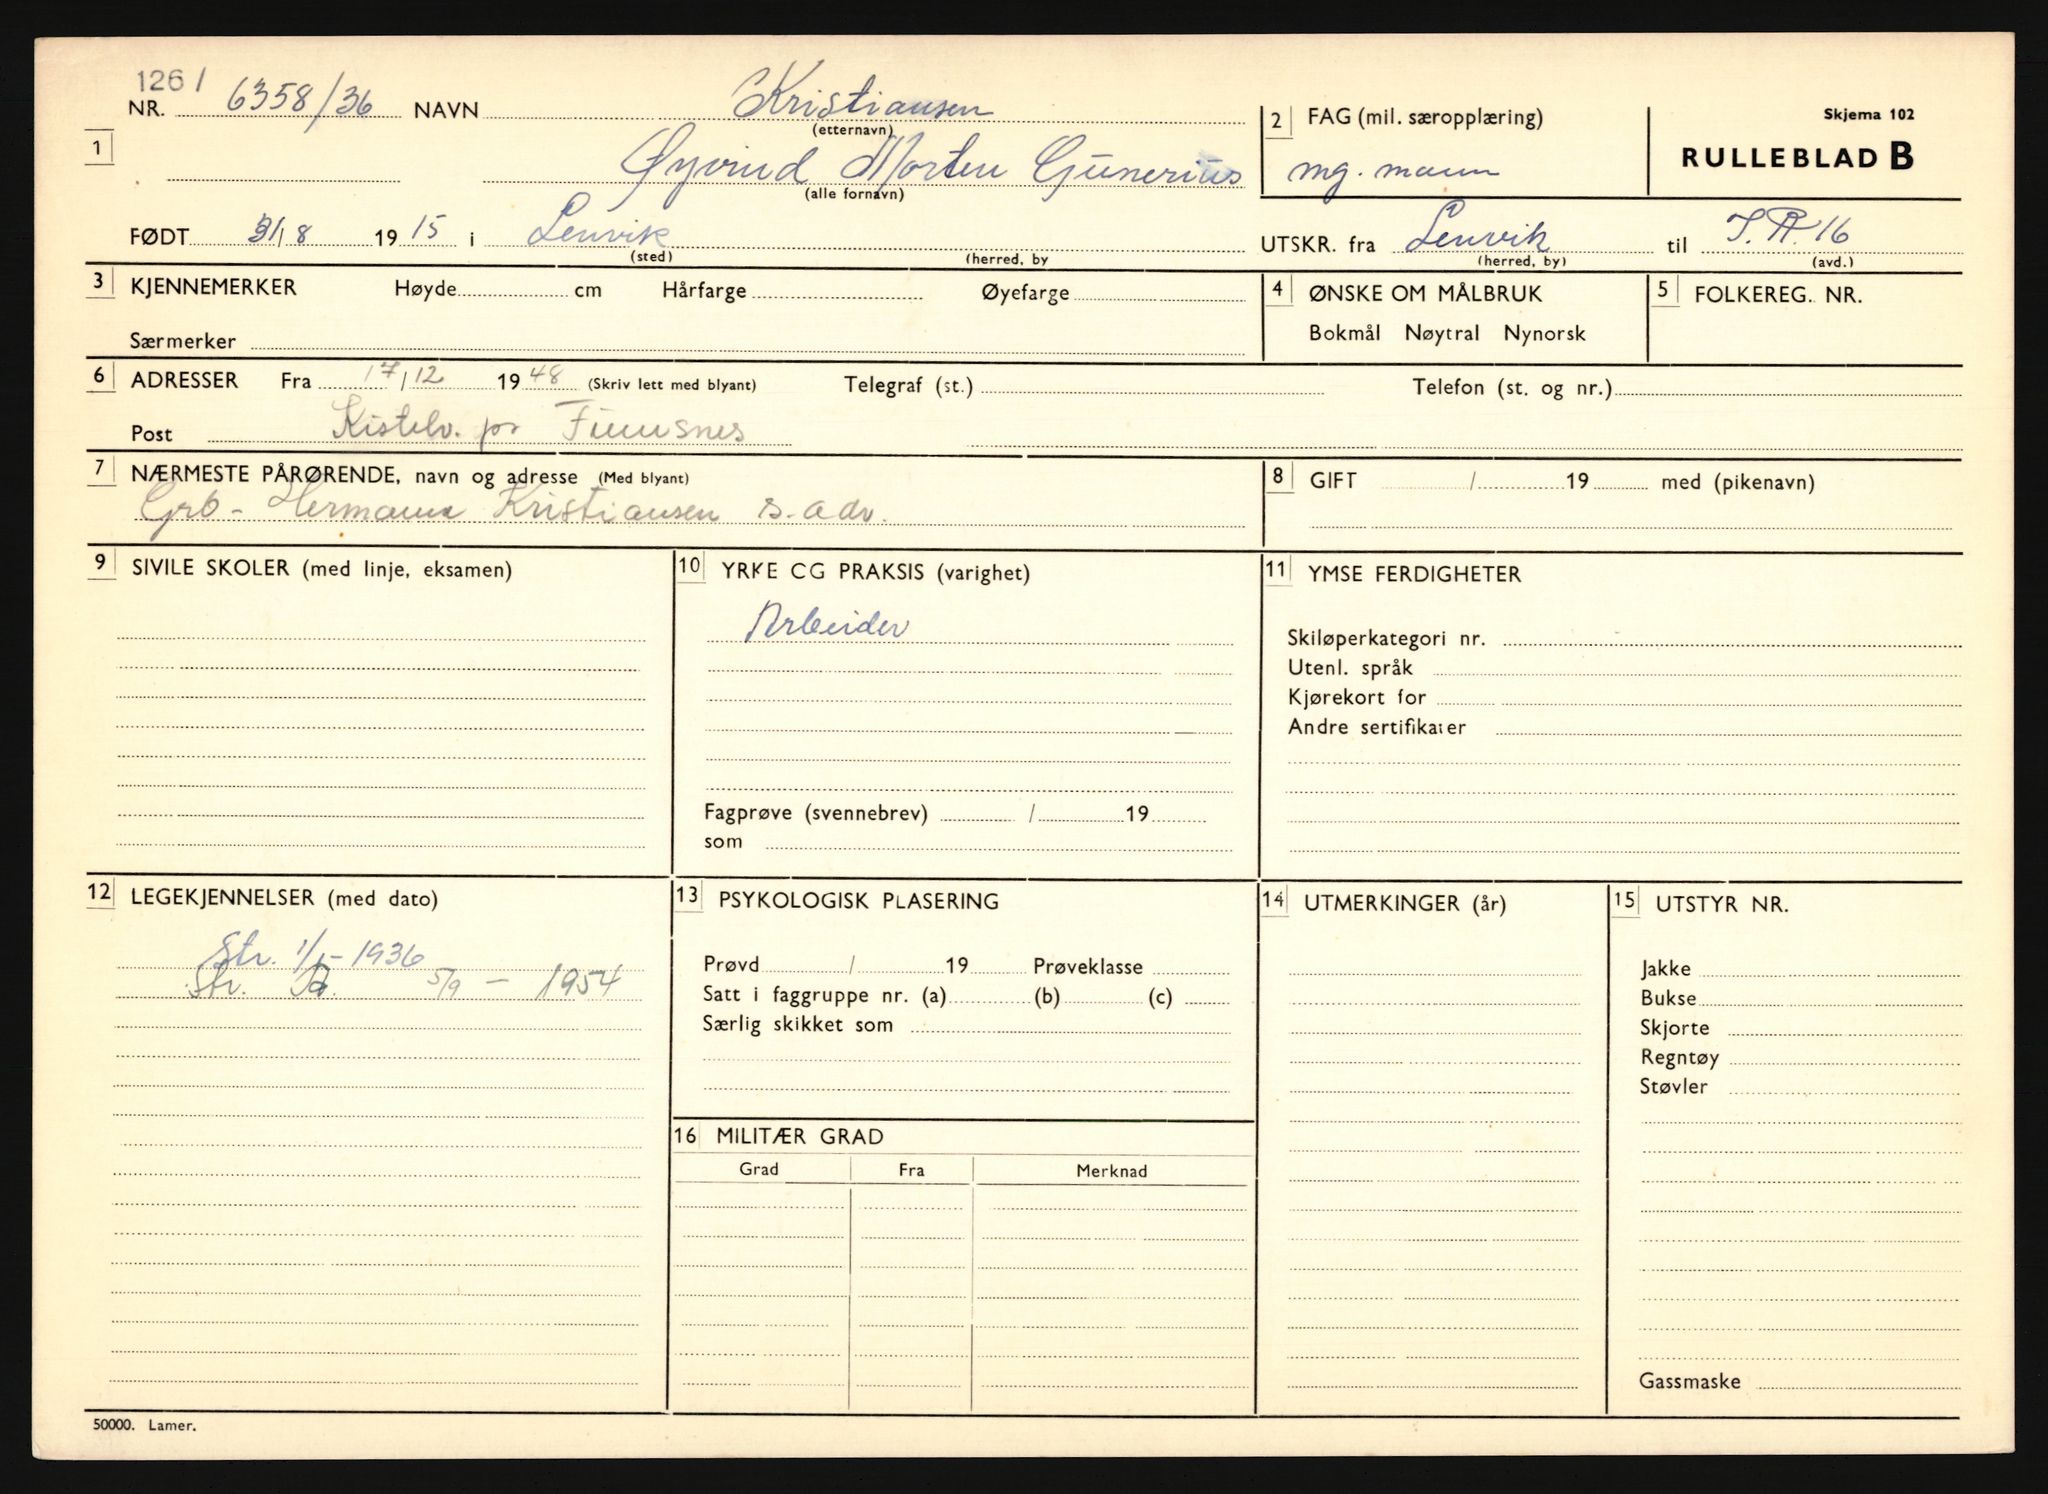 1261
NR. 6358/36 NAVN Kristiansen
(etternavn)
2 FAG (mil. særopplæring)
Skjema 102
1
Øyvind Morten Gunerius
(alle fornavn)
mg. mann
RULLEBLAD B
FØDT 31/8 1915 i Lenvik
(sted) (herred, by
UTSKR. fra Lenvik til I.R. 16
(herred, by) (avd.)
3 KJENNEMERKER Høyde cm Hårfarge Øyefarge
Særmerker
4 ØNSKE OM MÅLBRUK
Bokmål Nøytral Nynorsk
5 FOLKEREG. NR.
6 ADRESSER Fra 17/12 1948 (Skriv lett med blyant) Telegraf (st.) Telefon (st. og nr.)
Post Kistelv. pr Finnsnes
7 NÆRMESTE PÅRØRENDE, navn og adresse (Med blyant)
Grb - Hermann Kristiansen s. adr.
8 GIFT / 19 med (pikenavn)
9 SIVILE SKOLER (med linje, eksamen)
10 YRKE CG PRAKSIS (varighet)
Arbeider
Fagprøve (svennebrev) / 19
som
11 YMSE FERDIGHETER
Skiløperkategori nr.
Utenl. språk
Kjørekort for
Andre sertifikater
12 LEGEKJENNELSER (med dato)
Str. 1/1 - 1936
Str. 5/9 - 1954
13 PSYKOLOGISK PLASERING
Prøvd / 19 Prøveklasse
Satt i faggruppe nr. (a) (b) (c)
Særlig skikket som
14 UTMERKINGER (år)
15 UTSTYR NR.
Jakke
Bukse
Skjorte
Regntøy
Støvler
Gassmaske
16 MILITÆR GRAD
Grad Fra Merknad
50000. Lamer.